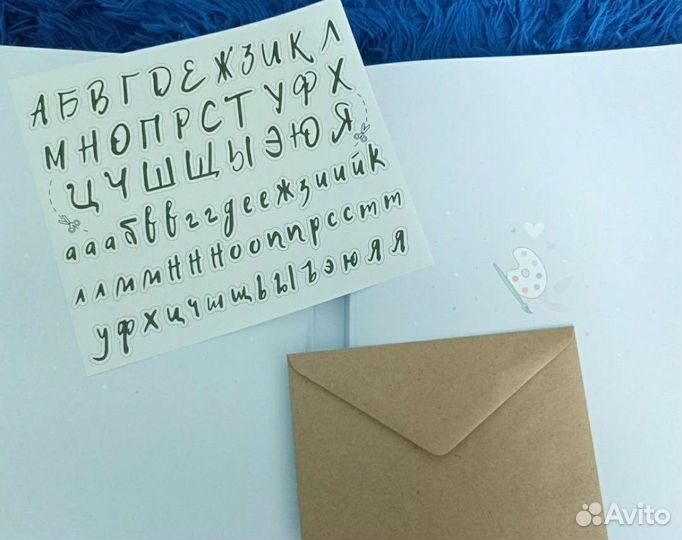 А Б В Г Д Е Ж З И К Л
М Н О П Р С Т У Ф Х
Ц Ч Ш Щ Ы Э Ю Я
а а а б в в г г д е е ж з и и й к
л л м м н н н о о п п р с с т т
у ф х ц ч ш щ ь ы ъ э ю я я
Avito